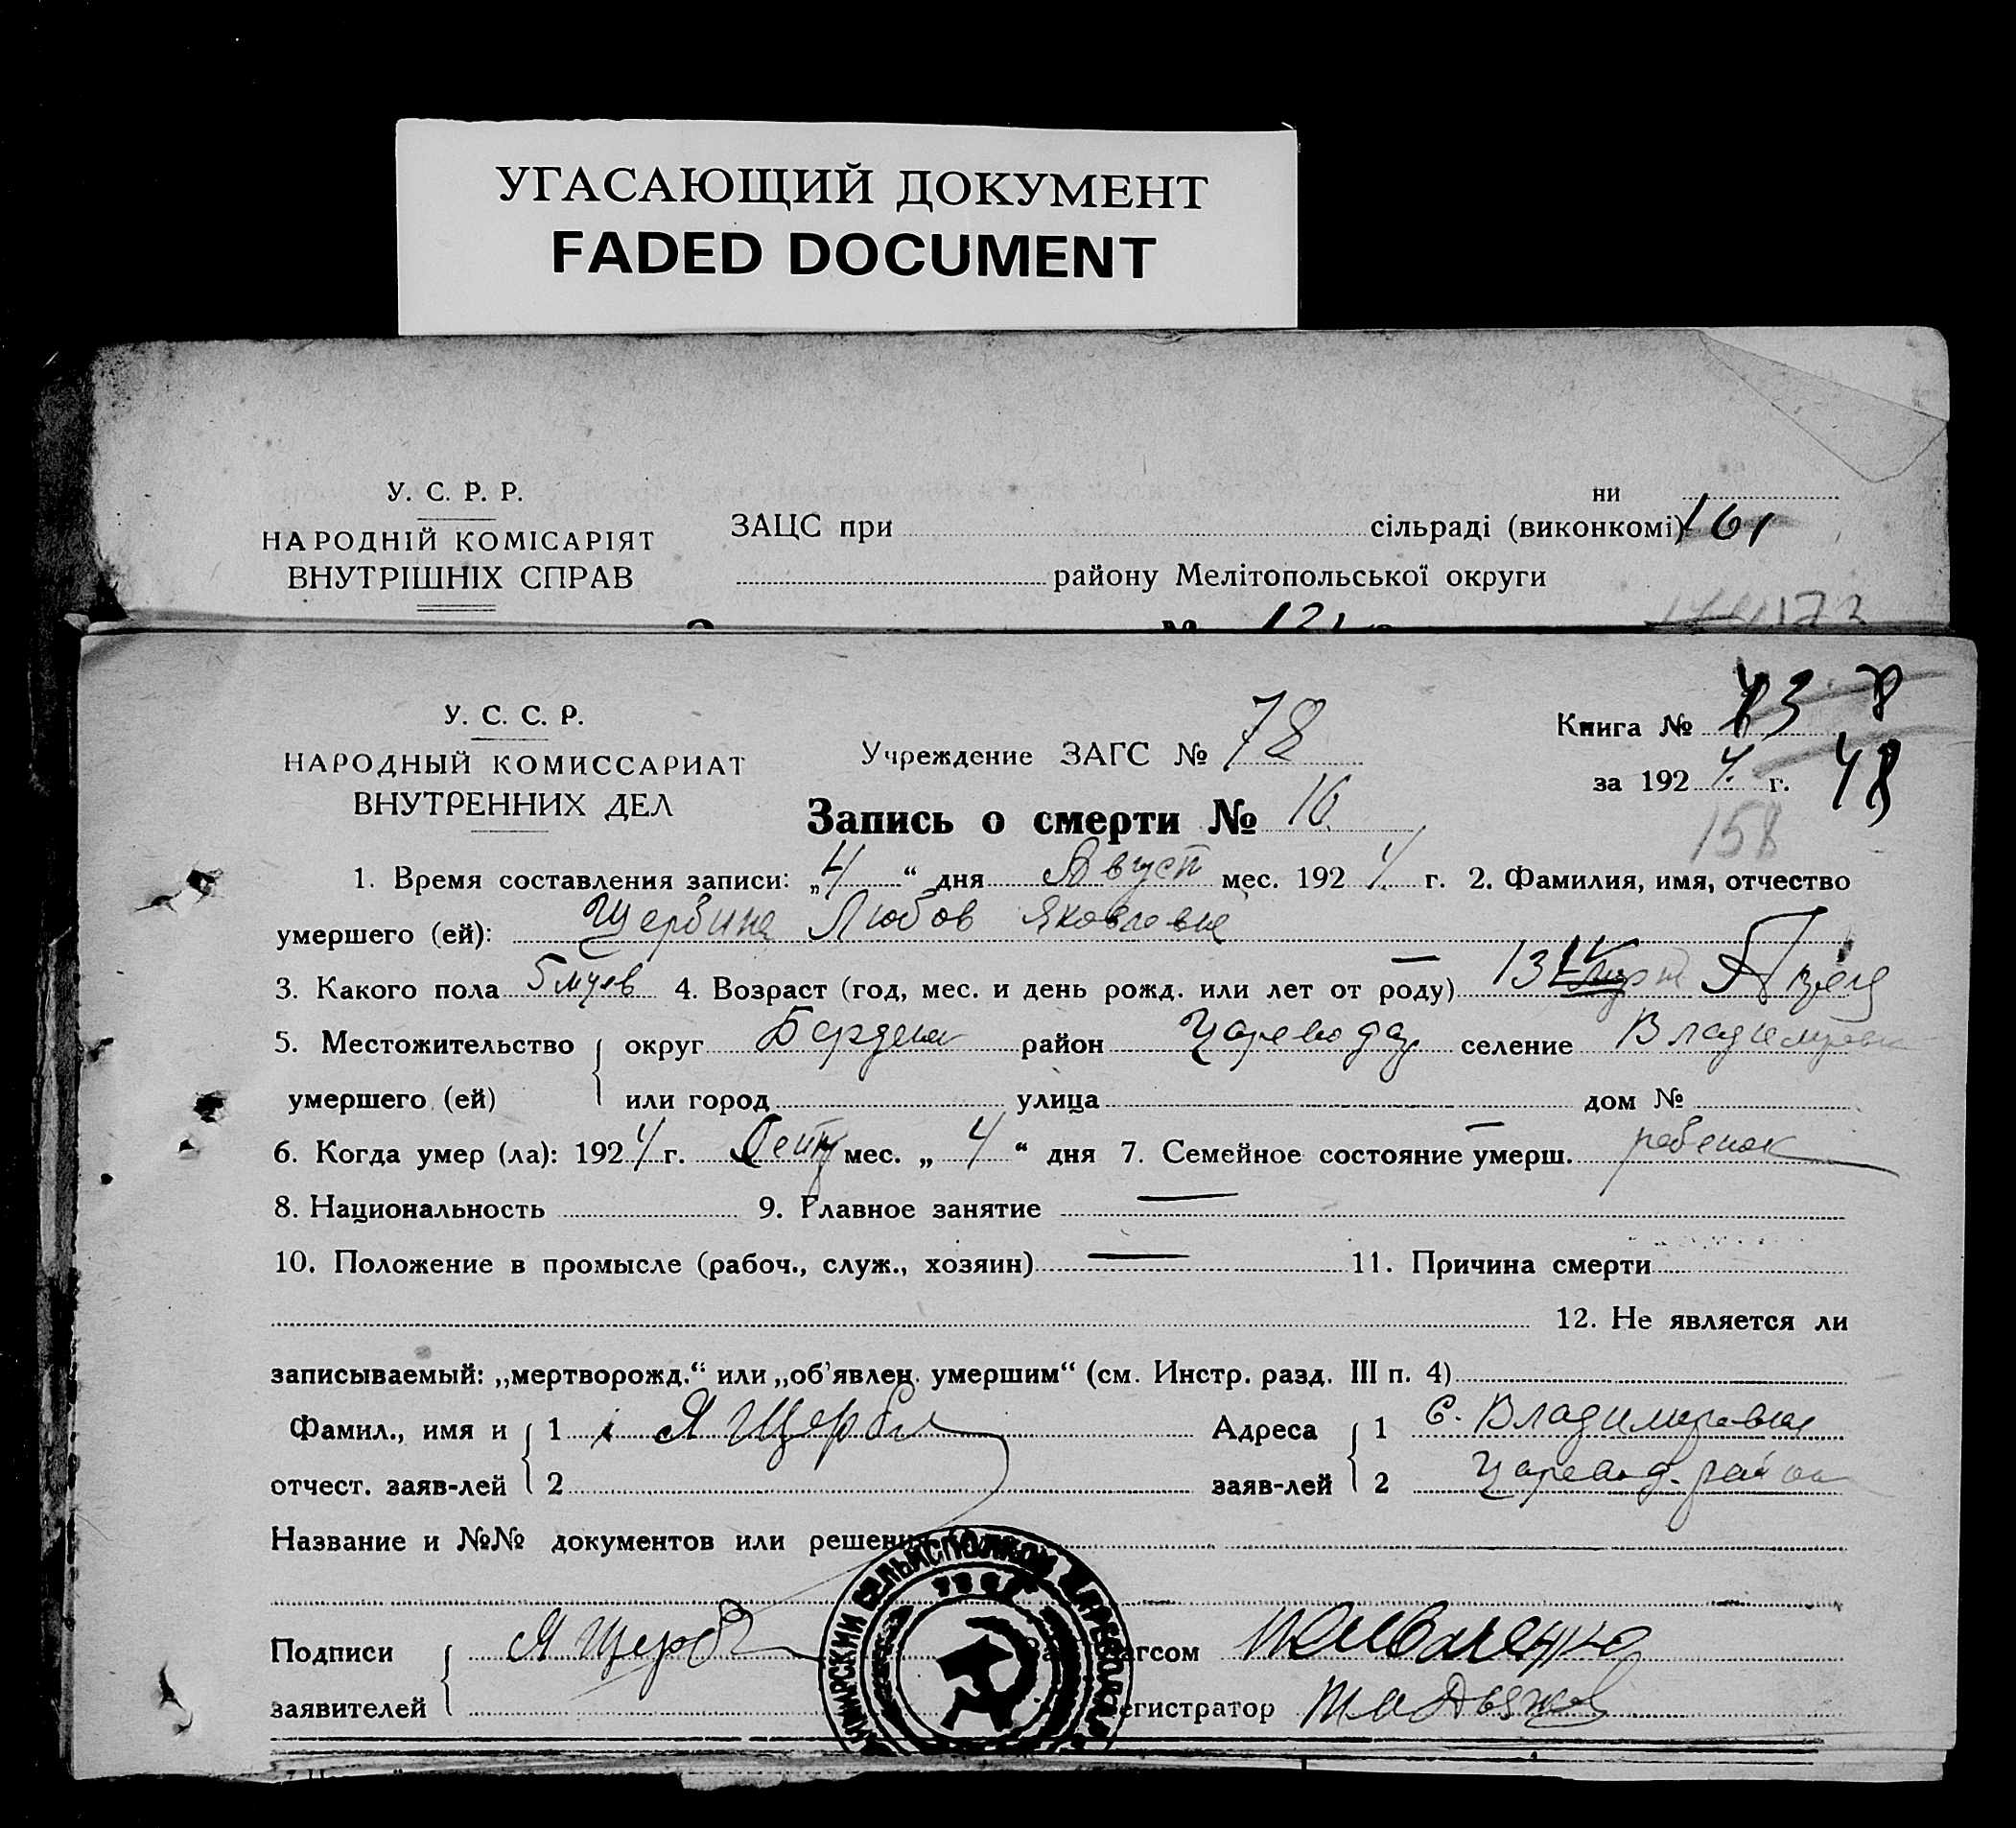 УГАСАЮЩИЙ ДОКУМЕНТ
FADED DOCUMENT
У. С. Р. Р.
НАРОДНІЙ КОМІСАРІЯТ
ВНУТРІШНІХ СПРАВ
ни
ЗАЦС при сільраді (виконкомі) 161
району Мелітопольської округи
У. С. С. Р.
НАРОДНЫЙ КОМИССАРИАТ
ВНУТРЕННИХ ДЕЛ
Учреждение ЗАГС № 78
Книга №
за 1924 г. 48
158
Запись о смерти № 16
1. Время составления записи: „4“ дня Август мес. 1924 г. 2. Фамилия, имя, отчество
умершего (ей): Щербина Любов Яковлевна
3. Какого пола 4. Возраст (год, мес. и день рожд. или лет от роду) 13
5. Местожительство округ Бердян район Цареводар селение Владимировка
умершего (ей) или город улица дом №
6. Когда умер (ла): 1924 г. мес. „4“ дня 7. Семейное состояние умерш. ребенок
8. Национальность 9. Главное занятие —
10. Положение в промысле (рабоч., служ., хозяин) — 11. Причина смерти
12. Не является ли
записываемый: „мертворожд.“ или „об'явлен. умершим“ (см. Инстр. разд. III п. 4)
Фамил., имя и 1 Я Щерби Адреса 1 с. Владимировка
отчест. заяв-лей 2 заяв-лей 2 Царевод. район
Название и №№ документов или решений
Подписи Я Щерб агсом
заявителей егистратор
СЕЛЬИСПОЛКОМ